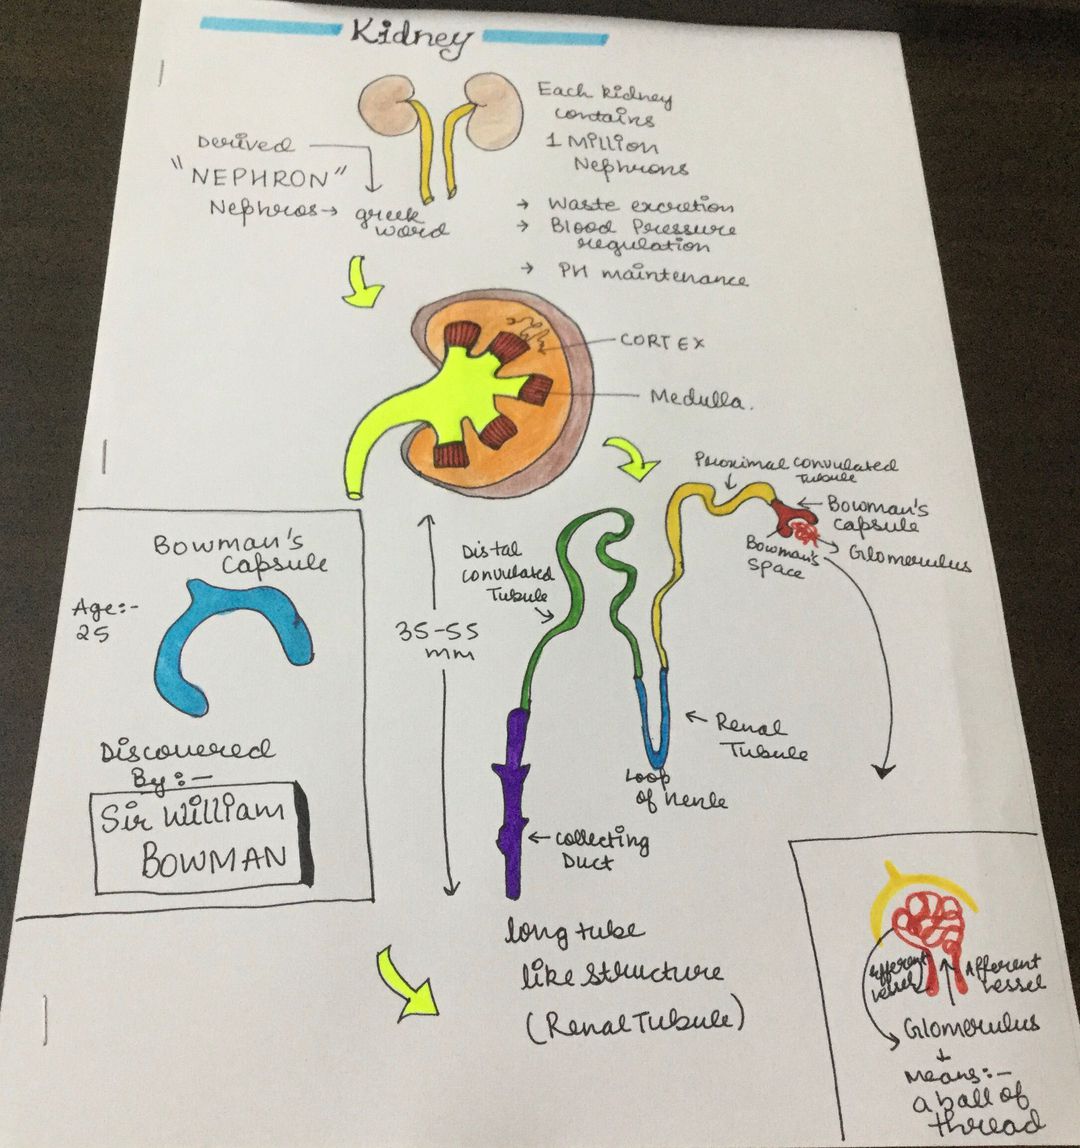 Kidney
Each kidney
contains
1 Million
Nephrons
Derived
"NEPHRON"
Nephros → greek
word
→ Waste excretion
→ Blood Pressure
regulation
→ PH maintenance
CORTEX
Medulla.
Proximal convulated
Tubule
Bowman's
capsule
Bowman's
space
Glomerulus
Distal
convulated
Tubule
35-55
mm
Renal
Tubule
Loop
of Henle
collecting
Duct
long tube
like structure
(Renal Tubule)
Bowman's
capsule
Age:-
25
Discovered
By:-
Sir William
BOWMAN
efferent
vessel
Afferent
vessel
Glomerulus
Means:-
a ball of
thread